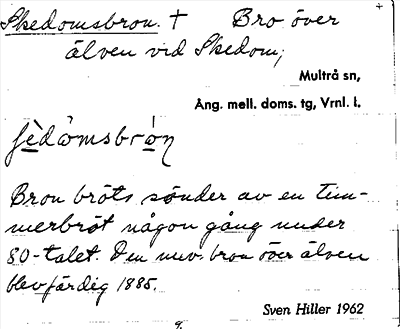 Skedomsbron. † Bro över
älven vid Skedom;
Multrå sn,
Ång. mell. doms. tg, Vrnl. l.
Bron bröts sönder av en tim-
merbröt någon gång under
80-talet. Den nuv. bron över älven
blev färdig 1885.
Sven Hiller 1962